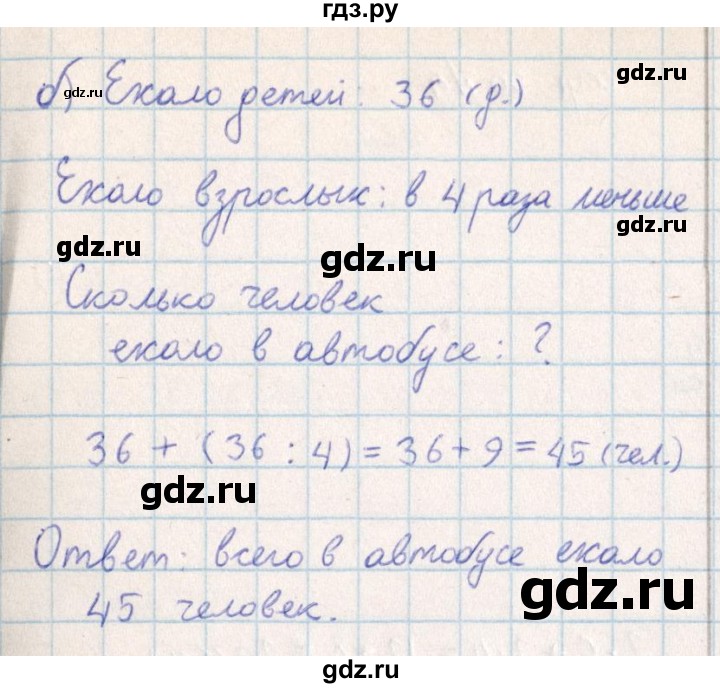 гдз.ру
gdz.ru
б) Ехало детей: 36 (д.)
gdz.ru
Ехало взрослых: в 4 раза меньше
gdz.ru
gdz.ru
gdz.ru
Сколько человек
ехало в автобусе: ?
gdz.ru
36 + (36 : 4) = 36 + 9 = 45 (чел.)
gdz.ru
Ответ: всего в автобусе ехало
45 человек.
gdz.ru
gdz.ru